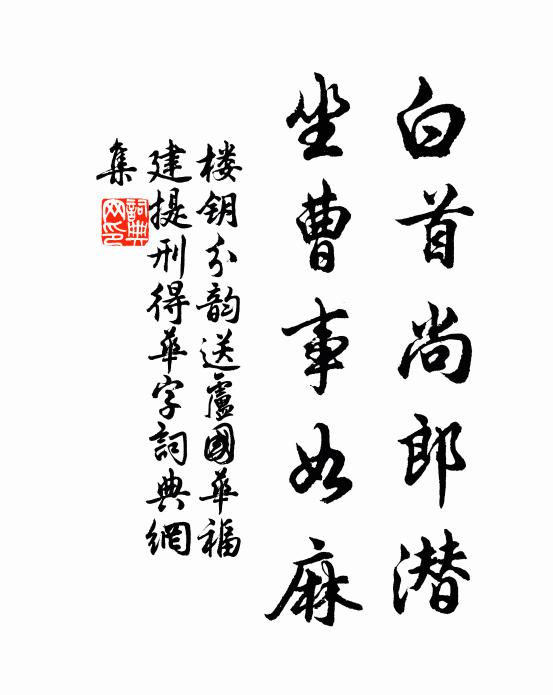 白首尚郎潜
坐曹事如麻
楼钥分韵送盧國华福
建提刑得华字詞典網
集
詞典
网印